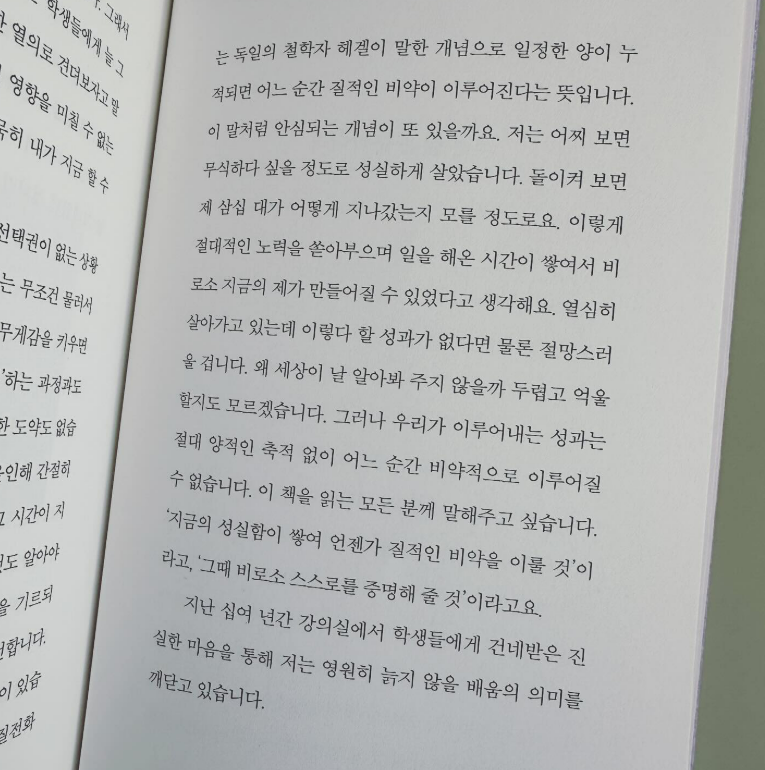 r. 그래서
학생들에게 늘 그
한 열의로 견뎌보자고 말
영향을 미칠 수 없는
묵히 내가 지금 할 수
선택권이 없는 상황
는 무조건 물러서
무게감을 키우면
'하는 과정과도
한 도약도 없습
인해 간절히
시간이 지
도 알아야
을 기르되
합니다.
이 있습
질전화
는 독일의 철학자 헤겔이 말한 개념으로 일정한 양이 누
적되면 어느 순간 질적인 비약이 이루어진다는 뜻입니다.
이 말처럼 안심되는 개념이 또 있을까요. 저는 어찌 보면
무식하다 싶을 정도로 성실하게 살았습니다. 돌이켜 보면
제 삼십 대가 어떻게 지나갔는지 모를 정도로요. 이렇게
절대적인 노력을 쏟아부으며 일을 해온 시간이 쌓여서 비
로소 지금의 제가 만들어질 수 있었다고 생각해요. 열심히
살아가고 있는데 이렇다 할 성과가 없다면 물론 절망스러
울 겁니다. 왜 세상이 날 알아봐 주지 않을까 두렵고 억울
할지도 모르겠습니다. 그러나 우리가 이루어내는 성과는
절대 양적인 축적 없이 어느 순간 비약적으로 이루어질
수 없습니다. 이 책을 읽는 모든 분께 말해주고 싶습니다.
'지금의 성실함이 쌓여 언젠가 질적인 비약을 이룰 것'이
라고, '그때 비로소 스스로를 증명해 줄 것'이라고요.
지난 십여 년간 강의실에서 학생들에게 건네받은 진
실한 마음을 통해 저는 영원히 늙지 않을 배움의 의미를
깨닫고 있습니다.